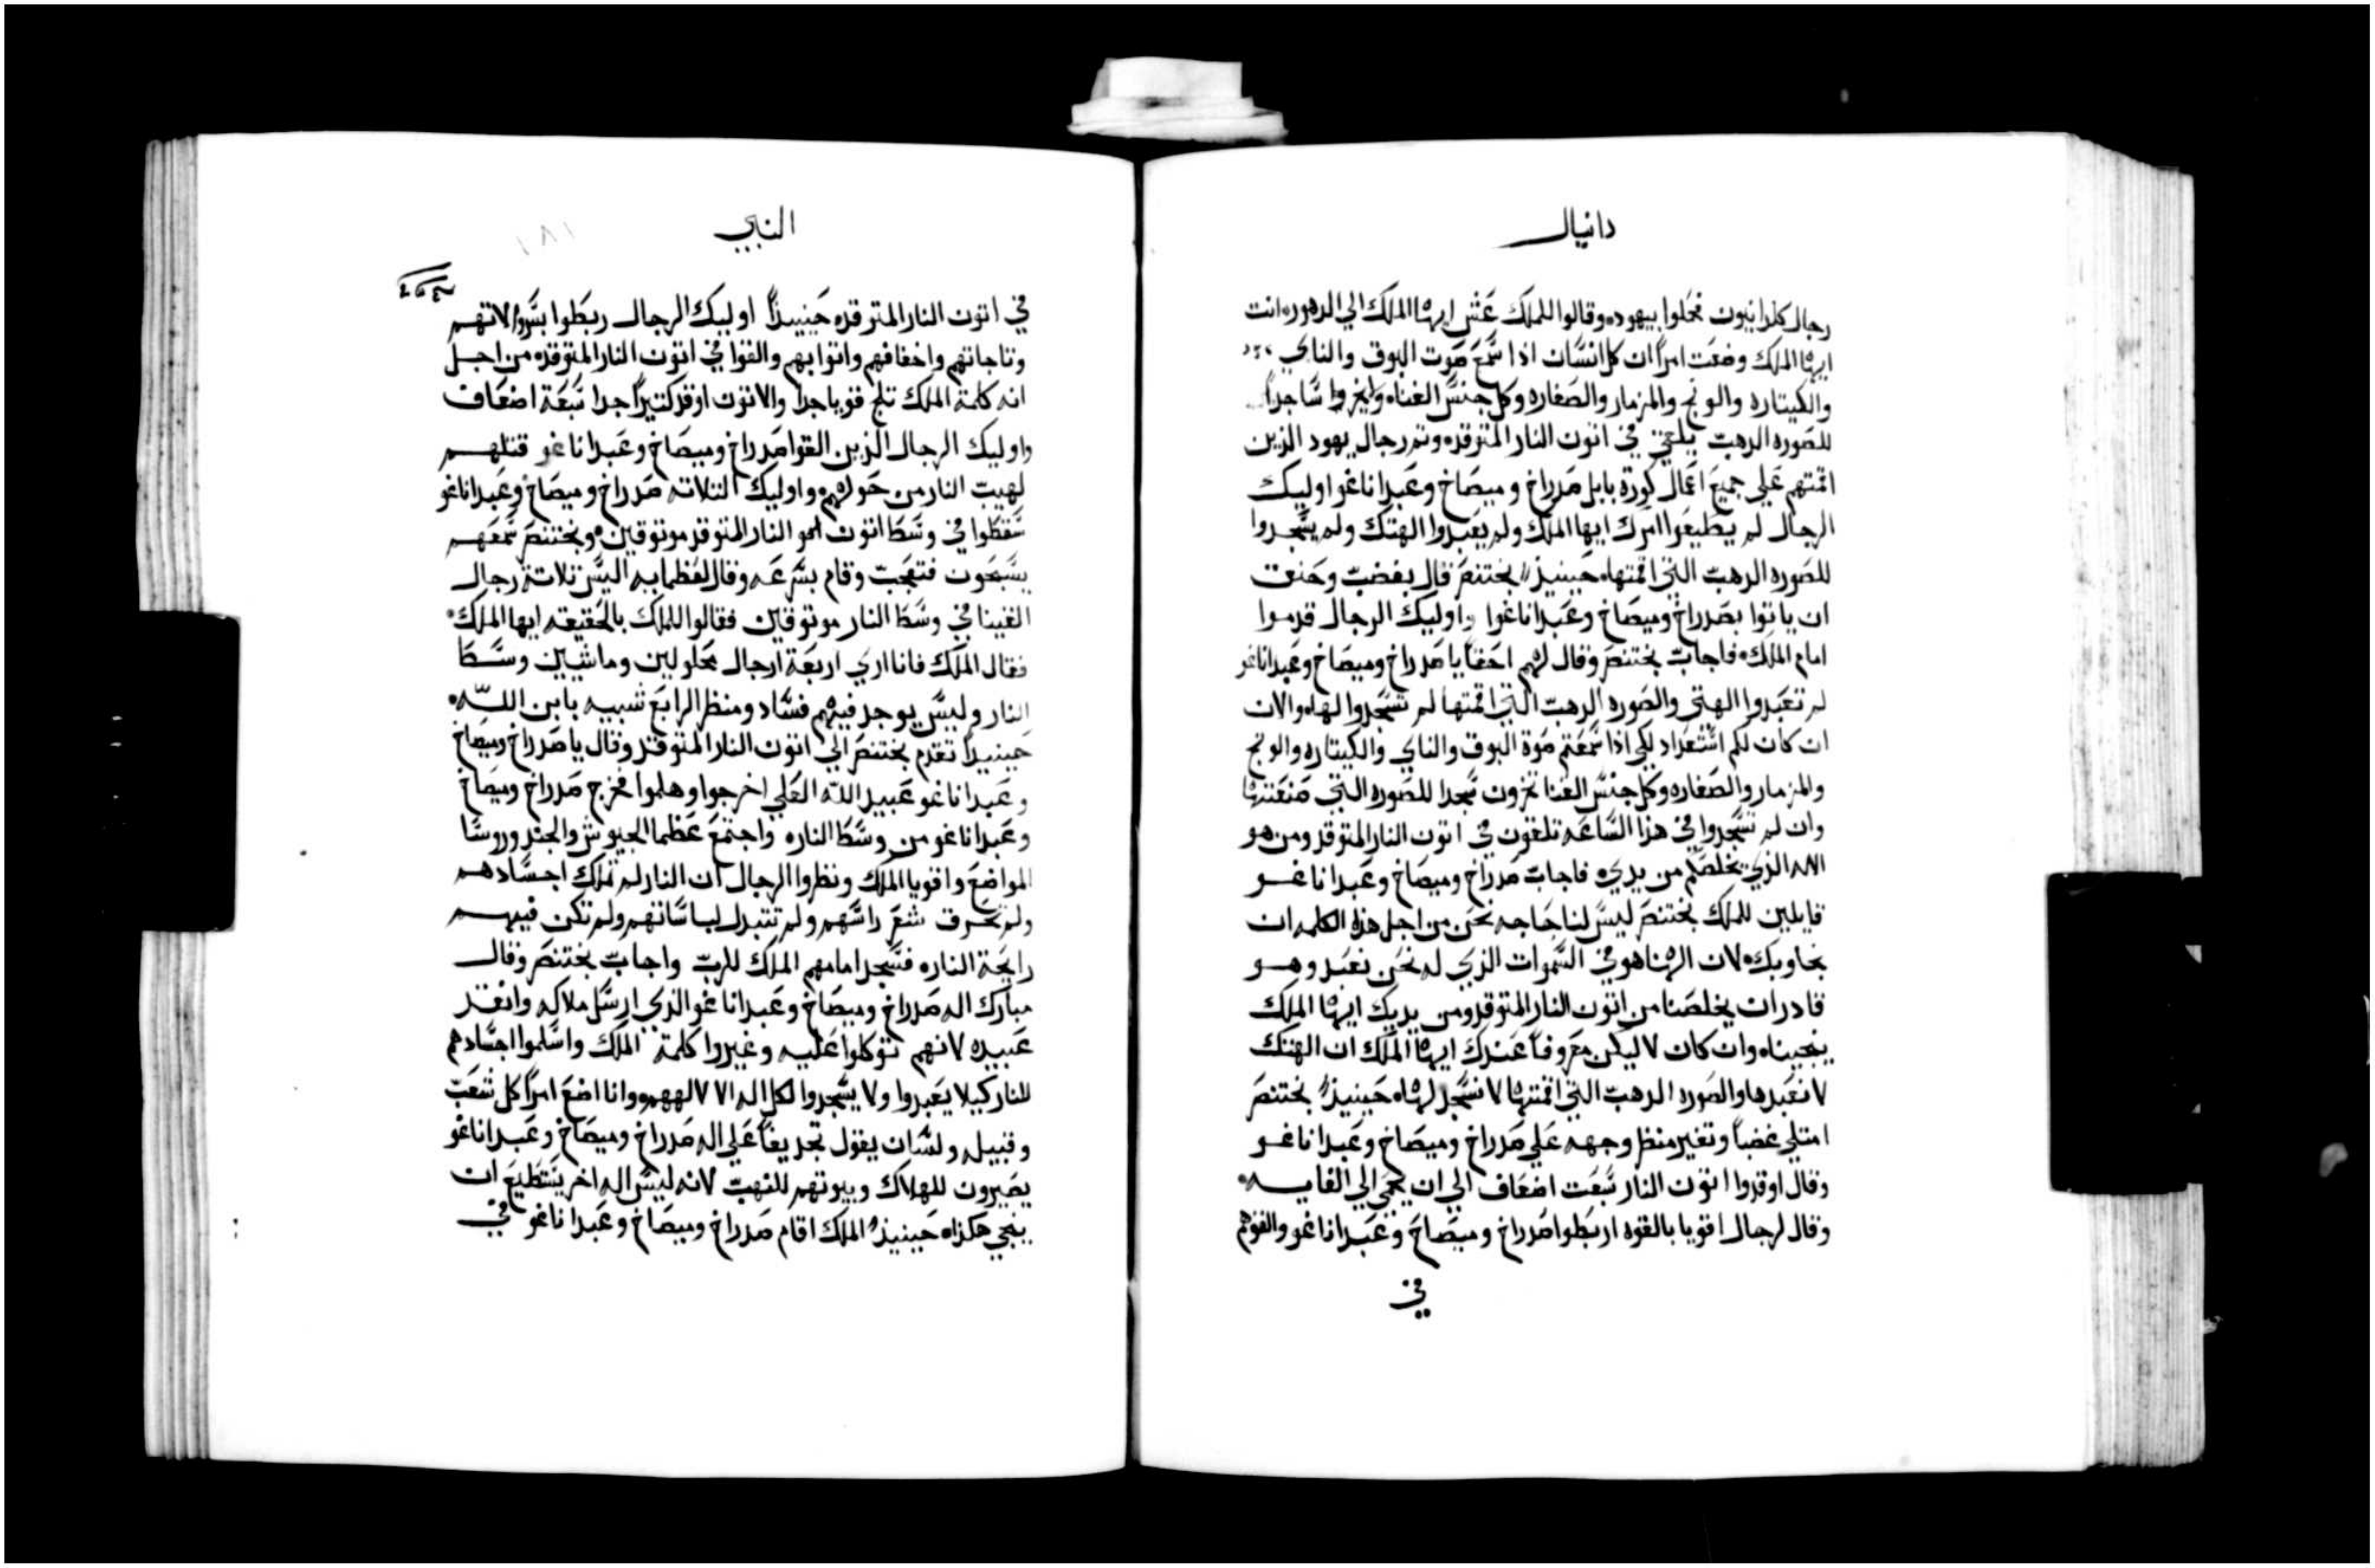 دانيال
رجال كلدانيون محلوا بيهوده وقالوا للملك عش ايها الملك الي الدهور انت
ايها الملك وضعت امراً ان كل انسان اذا سمع صوت البوق والناي
والكيتاره والونج والمزمار والصفاره وكل جنس الغناه ساجداً
للصوره الدهب يلقي في اتون النار المتوقده وتم رجال يهود الذين
اقمتهم علي جميع اعمال كورة بابل صدراخ وميصاخ وعبداناغو اوليك
الرجال لم يطيعوا امرك ايها الملك ولم يعبدوا الهتك ولم يسجدوا
للصوره الدهب التي اقمتها حينيذ بختنصر قال بغضب وحنق
ان ياتوا بصدراخ وميصاخ وعبداناغوا واوليك الرجال قدموا
امام الملك فاجاب بختنصر وقال لهم احقاً يا صدراخ وميصاخ وعبداناغو
لم تعبدوا الهتي والصوره الدهب التي اقمتها لم تسجدوا لها والان
ان كان لكم اشتعداد لكي اذا سمعتم صوة البوق والناي والكيتاره والونج
والمزمار والصفاره وكل جنس الغنا تخرون سجدا للصوره التي صنعتها
وان لم تسجدوا في هذا الساعه تلقون في اتون النار المتوقد ومن هو
الاه الذي يخلصكم من يدي فاجاب صدراخ وميصاخ وعبداناغو
قايلين للملك بختنصر ليس لنا حاجه نحن من اجل هذه الكلمه ان
نجاوبك لان الهنا هو في السموات الذي له نحن نعبد وهو
قادر ان يخلصنا من اتون النار المتوقد ومن يديك ايها الملك
ينجيناه وان كان لا ليكن معروفاً عندك ايها الملك ان الهتك
لا نعبدها والصوره الدهب التي اقمتها لا نسجد لها حينيذ بختنصر
امتلي غضباً وتغير منظر وجهه علي صدراخ وميصاخ وعبداناغو
وقال اوقدوا اتون النار سبعت اضعاف الي ان يحمي الي الغايه
وقال لرجال اقويا بالقوه اربطوا صدراخ وميصاخ وعبداناغو والقوهم
في
النبي
١٨١
في اتون النار المتوقده حينيذاً اوليك الرجال ربطوا بسروالاتهم
وتاجاتهم واخفافهم واتوابهم والقوا في اتون النار المتوقده من اجل
انه كلمة الملك تلج قويا جدا والاتون اوقد كتيراً جدا سبعة اضعاف
واوليك الرجال الذين القوا صدراخ وميصاخ وعبداناغو قتلهم
لهيب النار من حولهم واوليك التلاته صدراخ وميصاخ وعبداناغو
سقطوا في وسط اتون النار المتوقد موتوقين وبختنصر سمعهم
يسبحون فتعجب وقام بسرعه وقال لعظمايه اليس تلاتة رجال
القينا في وسط النار موتوقين فقالوا للملك بالحقيقه ايها الملك
فقال الملك فانا اري اربعة ارجال محلولين وماشيين وسطا
النار وليس يوجد فيهم فساد ومنظر الرابع شبيه بابن الله
حينيداً تقدم بختنصر الي اتون النار المتوقد وقال يا صدراخ وميصاخ
وعبداناغو عبيد الله العلي اخرجوا وهلموا فخرج صدراخ وميصاخ
وعبداناغو من وسط الناره واجتمع عظما الجيوش والجند وروسا
المواضع واقويا الملك ونظروا الرجال ان النار لم تملك اجسادهم
ولم تحرق شعر راسهم ولم تتبدل لباساتهم ولم تكن فيهم
رايحة الناره فسجد امامهم الملك للرب واجاب بختنصر وقال
مبارك اله صدراخ وميصاخ وعبداناغو الذي ارسل ملاكه وانقد
عبيده لانهم توكلوا عليه وغيروا كلمة الملك واسلموا اجسادهم
للنار كيلا يعبدوا ولا يسجدوا لكل اله الا لالههم وانا اضع امراً كل شعب
وقبيله ولسان يقول تجديفاً علي اله صدراخ وميصاخ وعبداناغو
يصيرون للهلاك وبيوتهم للنهب لانه ليس اله اخر يستطيع ان
ينجي هكذاه حينيذ الملك اقام صدراخ وميصاخ وعبداناغو في